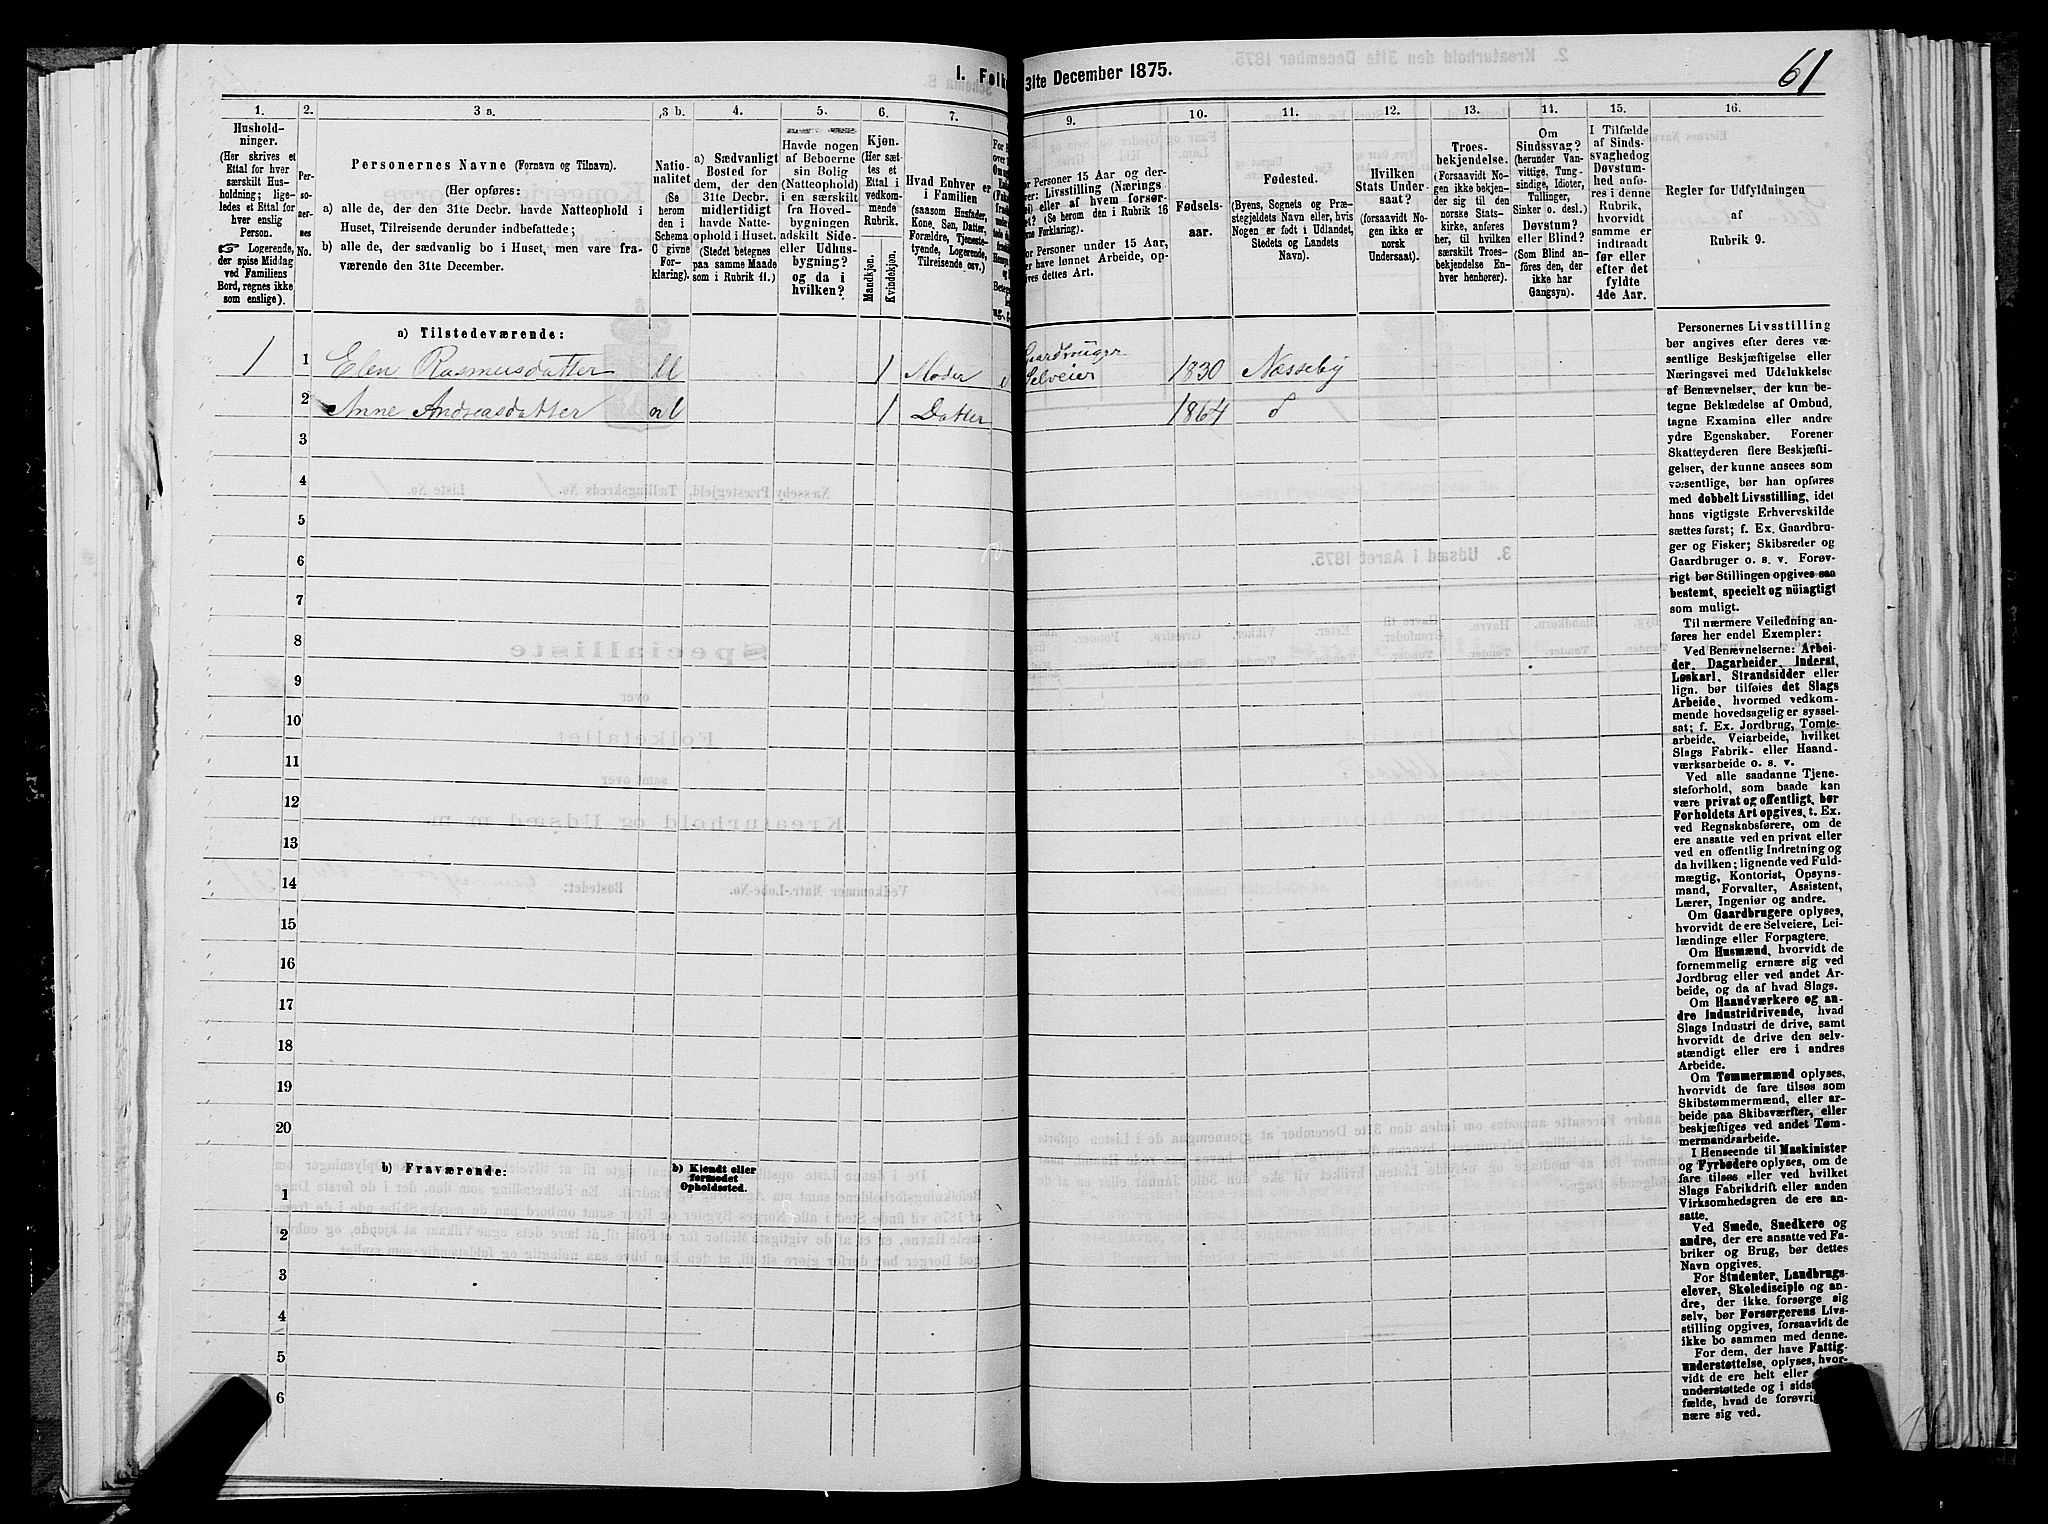 61
1. Folke
31te December 1875.
1.
2.
3 a.
3 b.
4.
5.
6.
7.
9.
10.
11.
12.
13.
14.
15.
16.
Hushold-
ninger.
(Her skrives et
Ettal for hver
særskilt Hus-
holdning; lige-
ledes et Ettal for
hver enslig
Person.
Logerende,
der spise Middag
ved Familiens
Bord, regnes ikke
som enslige).
Per-
so-
ner-
nes
No.
Personernes Navne (Fornavn og Tilnavn).
(Her opføres:
a) alle de, der den 31te Decbr. havde Natteophold i
Huset, Tilreisende derunder indbefattede;
b) alle de, der sædvanlig bo i Huset, men vare fra-
værende den 31te December.
Natio-
nalitet
(Se
herom
den i
Schema
O givne
For-
klaring).
a) Sædvanligt
Bosted for
dem, der den
31te Decbr.
midlertidigt
havde Natte-
ophold i Huset.
(Stedet betegnes
paa samme Maade
som i Rubrik 11.)
Havde nogen
af Beboerne
sin Bolig
(Natteophold)
i en særskilt
fra Hoved-
bygningen
adskilt Side-
eller Udhus-
bygning?
og da i
hvilken?
Kjøn.
(Her sæt-
tes et
Ettal i
vedkom-
mende
Rubrik.
Mandkjøn.
Kvindekjøn.
Hvad Enhver er
i Familien
(saasom Husfader,
Kone, Søn, Datter,
Forældre, Tjeneste-
tyende, Logerende,
Tilreisende osv.)
Fødsels-
aar.
Fødested.
(Byens, Sognets og Præ-
stegjeldets Navn eller, hvis
Nogen er født i Udlandet,
Stedets og Landets
Navn).
Hvilken
Stats Under-
saat?
(forsaavidt No-
gen ikke er
norsk
Undersaat).
Troes-
bekjendelse.
(Forsaavidt No-
gen ikke bekjen-
der sig til den
norske Stats-
kirke, anføres
her, til hvilken
særskilt Troes-
bekjendelse En-
hver henhører).
Om
Sindssvag?
(herunder Van-
vittige, Tung-
sindige, Idioter,
Tullinger,
Sinker o. desl.)
Døvstum?
eller Blind?
(Som Blind an-
føres den, der
ikke har
Gangsyn).
I Tilfælde
af Sinds-
svaghed og
Døvstum-
hed anfø-
res i denne
Rubrik,
hvorvidt
samme er
indtraadt
før eller
efter det
fyldte
4de Aar.
Regler for Udfyldningen
af
Rubrik 9.
a) Tilstedeværende:
1 1 Elen Rasmusdatter 1 Moder Gaardbruger Selveier 1830 Næsseby
2 Anne Andreasdatter 1 Datter 1864 d
3
4
5
6
7
8
9
10
11
12
13
14
15
16
17
18
19
20
b) Fraværende:
b) Kjendt eller
formodet
Opholdssted.
1
2
3
4
5
6
Personernes Livsstilling
bør angives efter deres væ-
sentlige Beskjæftigelse eller
Næringsvei med Udelukkelse
af Benævnelser, der kun be-
tegne Beklædelse af Ombud,
tagne Examina eller andre
ydre Egenskaber. Forener
Skatteyderen flere Beskjæfti-
gelser, der kunne ansees som
væsentlige, bør han opføres
med dobbelt Livsstilling, idet
hans vigtigste Erhvervskilde
sættes først; f. Ex. Gaardbru-
ger og Fisker; Skibsreder og
Gaardbruger o. s. v. Forøv-
rigt bør Stillingen opgives saa
bestemt, specielt og nöiagtigt
som muligt.
Til nærmere Veiledning an-
føres her endel Exempler:
Ved Benævnelserne: Arbei-
der, Dagarbeider, Inderst,
Løskarl, Strandsidder eller
lign. bør tilføies det Slags
Arbeide, hvormed vedkom-
mende hovedsagelig er syssel-
sat; f. Ex. Jordbrug, Tomte-
arbeide, Veiarbeide, hvilket
Slags Fabrik- eller Haand-
værksarbeide o. s. v.
Ved alle saadanne Tjene-
steforhold, som baade kan
være privat og offentligt, bør
Forholdets Art opgives, t. Ex.
ved Regnskabsførere, om de
ere ansatte ved en privat eller
ved en offentlig Indretning og
da hvilken; lignende ved Fuld-
mægtig, Kontorist, Opsyns-
mand, Forvalter, Assistent,
Lærer, Ingeniør og andre.
Om Gaardbrugere oplyses,
hvorvidt de ere Selveiere, Lei-
lændinge eller Forpagtere.
Om Husmænd, hvorvidt de
fornemmelig ernære sig ved
Jordbrug eller ved andet Ar-
beide, og da af hvad Slags.
Om Haandværkere og an-
dre Industridrivende, hvad
Slags Industri de drive, samt
hvorvidt de drive den selv-
stændigt eller ere i andres
Arbeide.
Om Tømmermænd oplyses,
hvorvidt de fare tilsøs som
Skibstømmermænd, eller ar-
beide paa Skibsværfter, eller
beskjæftiges ved andet Tøm-
mermandsarbeide.
I Henseende til Maskinister
og Fyrbødere oplyses, om de
fare tilsøs eller ved hvilket
Slags Fabrikdrift eller anden
Virksomhedsgren de ere an-
satte.
Ved Smede, Snedkere og
andre, der ere ansatte ved Fa-
briker og Brug, bør dettes
Navn opgives.
For Studenter, Landbrugs-
elever, Skoledisciple og an-
dre, der ikke forsørge sig
selv, bør Forsørgerens Livs-
stilling opgives, forsaavidt de
ikke bo sammen med denne.
For dem, der have Fattig-
understøttelse, oplyses, hvor-
vidt de ere helt eller
understøttede og i sidst
fælde, hvad de forøvrig
nære sig ved.